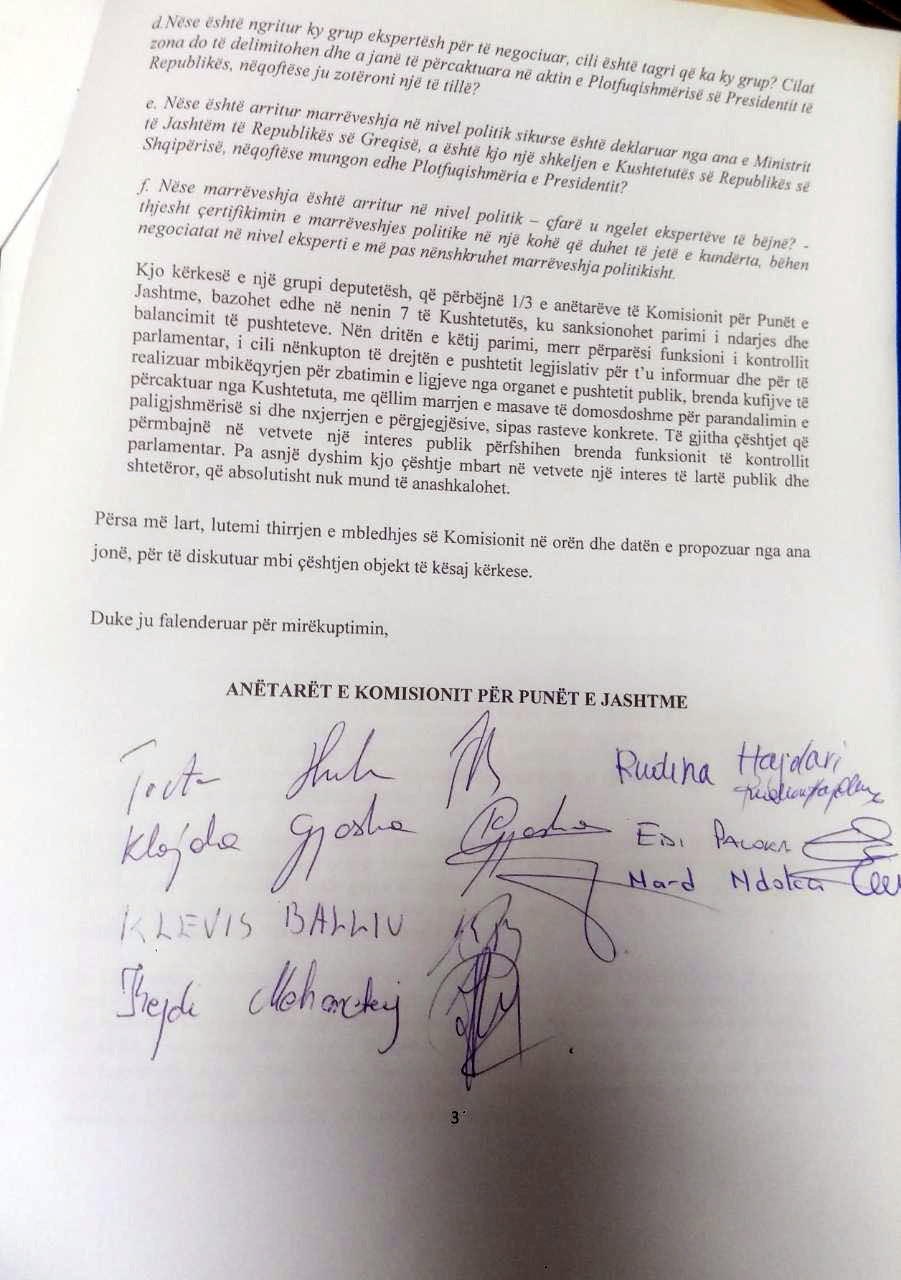 d.Nëse është ngritur ky grup ekspertësh për të negociuar, cili është tagri që ka ky grup? Cilat
zona do të delimitohen dhe a janë të përcaktuara në aktin e Plotfuqishmërisë së Presidentit të
Republikës, nëqoftëse ju zotëroni një të tillë?
e. Nëse është arritur marrëveshja në nivel politik sikurse është deklaruar nga ana e Ministrit
të Jashtëm të Republikës së Greqisë, a është kjo një shkeljen e Kushtetutës së Republikës së
Shqipërisë, nëqoftëse mungon edhe Plotfuqishmëria e Presidentit?
f. Nëse marrëveshja është arritur në nivel politik – çfarë u ngelet ekspertëve të bëjnë? -
thjesht çertifikimin e marrëveshjes politike në një kohë që duhet të jetë e kundërta, bëhen
negociatat në nivel eksperti e më pas nënshkruhet marrëveshja politikisht.
Kjo kërkesë e një grupi deputetësh, që përbëjnë 1/3 e anëtarëve të Komisionit për Punët e
Jashtme, bazohet edhe në nenin 7 të Kushtetutës, ku sanksionohet parimi i ndarjes dhe
balancimit të pushteteve. Nën dritën e këtij parimi, merr përparësi funksioni i kontrollit
parlamentar, i cili nënkupton të drejtën e pushtetit legjislativ për t'u informuar dhe për të
realizuar mbikëqyrjen për zbatimin e ligjeve nga organet e pushtetit publik, brenda kufijve të
përcaktuar nga Kushtetuta, me qëllim marrjen e masave të domosdoshme për parandalimin e
paligjshmërisë si dhe nxjerrjen e përgjegjësive, sipas rasteve konkrete. Të gjitha çështjet që
përmbajnë në vetvete një interes publik përfshihen brenda funksionit të kontrollit
parlamentar. Pa asnjë dyshim kjo çështje mbart në vetvete një interes të lartë publik dhe
shtetëror, që absolutisht nuk mund të anashkalohet.
Përsa më lart, lutemi thirrjen e mbledhjes së Komisionit në orën dhe datën e propozuar nga ana
jonë, për të diskutuar mbi çështjen objekt të kësaj kërkese.
Duke ju falenderuar për mirëkuptimin,
ANËTARËT E KOMISIONIT PËR PUNËT E JASHTME
Rudina Hajdari
Klajda Gjosha
EDI PALOKA
Nard Ndoka
KLEVIS BALLIU
3